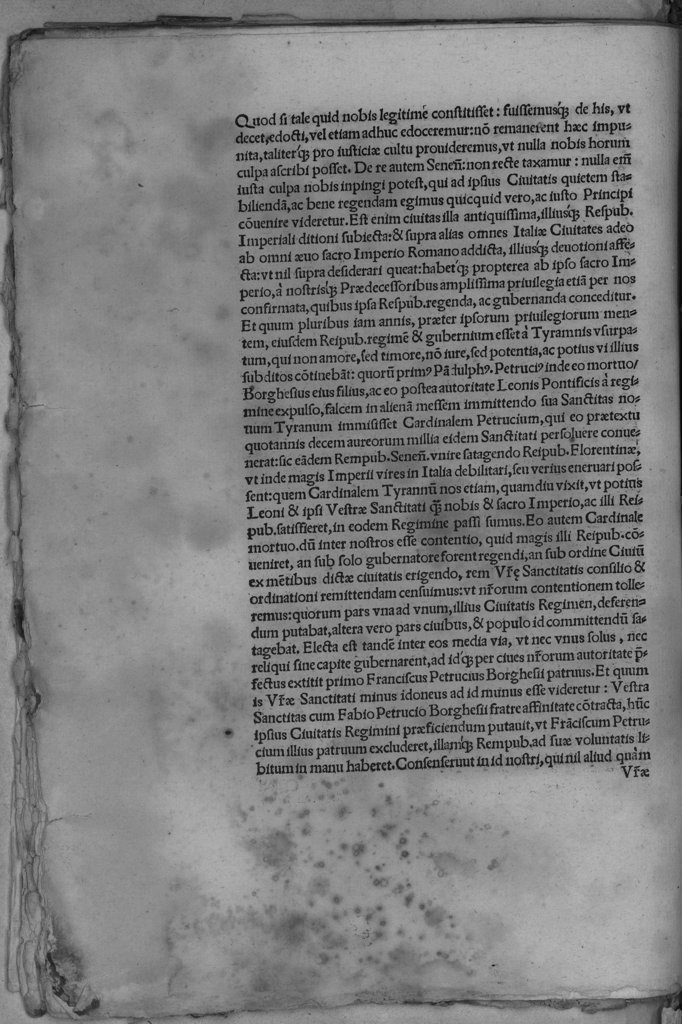 Quod si tale quid nobis legitime cõstitisset: fuissemusq; de his, vt
decet, edocti, vel etiam adhuc edoceremur: nõ remanerent hæc impu-
nita, taliterq; pro iusticiæ cultu prouideremus, vt nulla nobis horum
culpa ascribi posset. De re autem Seneñ: non recte taxamur: nulla em̃
iusta culpa nobis inpingi potest, qui ad ipsius Ciuitatis quietem sta-
biliendã, ac bene regendam egimus quicquid vero, ac iusto Principi
cõuenire videretur. Est enim ciuitas illa antiquissima, illiusq; Respub.
Imperiali ditioni subiecta: & supra alias omnes Italiæ Ciuitates adeo
ab omni æuo sacro Imperio Romano addicta, illiusq; deuotioni affe-
cta: vt nil supra desiderari queat: habetq; propterea ab ipso sacro Im-
perio, à nostrisq; Prædecessoribus amplissima priuilegia etiã per nos
confirmata, quibus ipsa Respub. regenda, ac gubernanda conceditur.
Et quum pluribus iam annis, præter ipsorum priuilegiorum men-
tem, eiusdem Reipub. regimẽ & gubernium esset à Tyramnis vsurpa-
tum, qui non amore, sed timore, nõ iure, sed potentia, ac potius vi illius
subditos cõtinebãt: quorũ primꝰ Pãdulphꝰ. Petruciꝰ inde eo mortuo/
Borghesius eius filius, ac eo postea autoritate Leonis Pontificis à regi-
mine expulso, falcem in alienã messem immittendo sua Sanctitas no-
uum Tyranum immisisset Cardinalem Petrucium, qui eo prætextu
quotannis decem aureorum millia eidem Sanctitati persoluere conue-
nerat: sic eãdem Rempub. Seneñ. vnire satagendo Reipub. Florentinæ,
vt inde magis Imperii vires in Italia debilitari, seu verius eneruari pos-
sent: quem Cardinalem Tyrannũ nos etiam, quamdiu vixit, vt potius
Leoni & ipsi Vestræ Sanctitati q̃ nobis & sacro Imperio, ac illi Rei-
pub. satisfieret, in eodem Regimine passi sumus. Eo autem Cardinale
mortuo. dũ inter nostros esse contentio, quid magis illi Reipub. cõ-
ueniret, an sub solo gubernatore forent regendi, an sub ordine Ciuiũ
ex mẽtibus dictæ ciuitatis erigendo, rem Vr̃ę Sanctitatis consilio &
ordinationi remittendam censuimus: vt nr̃orum contentionem tolle-
remus: quorum pars vna ad vnum, illius Ciuitatis Regimen, deferen-
dum putabat, altera vero pars ciuibus, & populo id committendũ sa-
tagebat. Electa est tandẽ inter eos media via, vt nec vnus solus, nec
reliqui sine capite gubernarent, ad idq; per ciues nr̃orum autoritate p̃-
fectus extitit primo Franciscus Petrucius Borghesii patruus. Et quum
is Vr̃æ Sanctitati minus idoneus ad id munus esse videretur: Vestra
Sanctitas cum Fabio Petrucio Borghesii fratre affinitate cõtracta, hũc
ipsius Ciuitatis Regimini præficiendum putauit, vt Frãciscum Petru-
cium illius patruum excluderet, illamq; Rempub. ad suæ voluntatis li-
bitum in manu haberet. Consenseruut in id nostri, qui nil aliud quàm
Vr̃æ